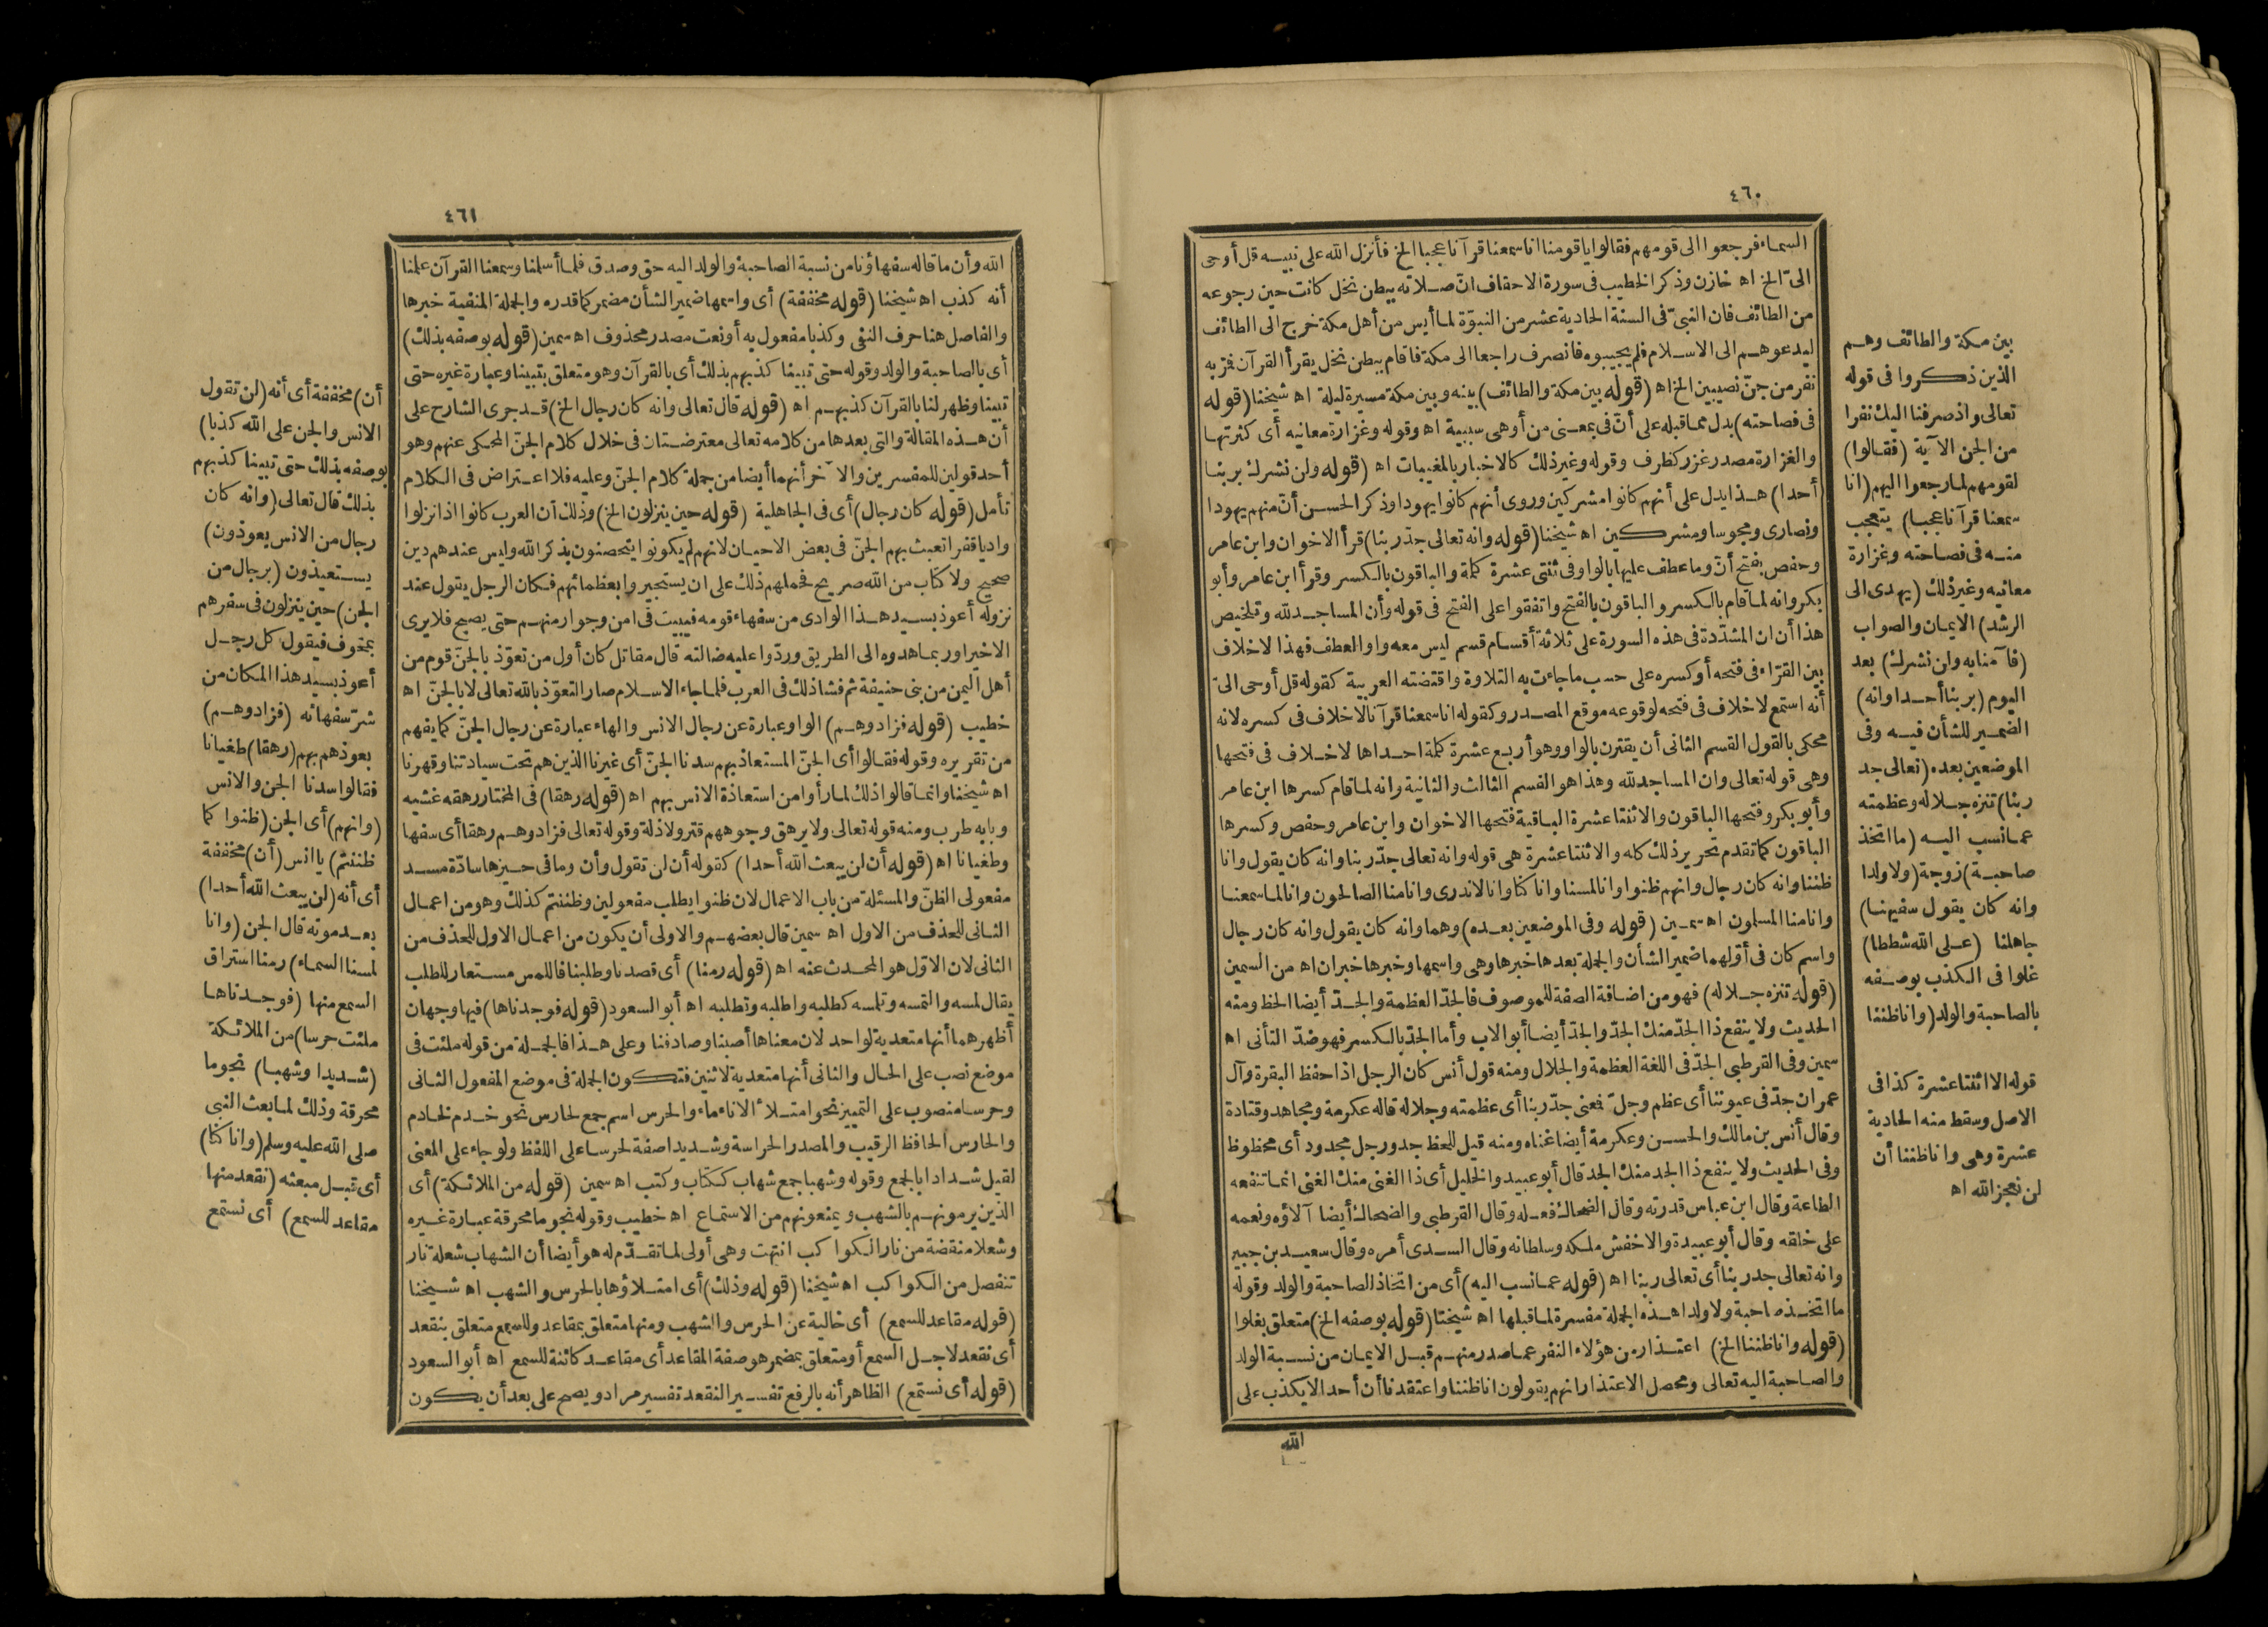 ٤٦٠
السماء فرجعوا الى قومهم فقالوا يا قومنا انا سمعنا قرآنا عجبا الخ فأنزل الله على نبيه قل أوحى
الىّ الخ اه خازن وذكر الخطيب فى سورة الاحقاف انّ صلاته ببطن نخل كانت حين رجوعه
من الطائف فان النبىّ فى السنة الحادية عشر من النبوّة لما أيس من أهل مكة خرج الى الطائف
ليدعوهم الى الاسلام فلم يجيبوه فانصرف راجعا الى مكة فاقام ببطن نخل يقرأ القرآن فمرّ به
نفر من جنّ نصيبين الخ اه (قوله بين مكة والطائف) بينه وبين مكة مسيرة ليلة اه شيخنا (قوله
فى فصاحته) بدل مما قبله على أنّ فى بمعنى من أو هى سببية اه وقوله وغزارة معانيه أى كثرتها
والغزارة مصدر غزر كظرف وقوله وغير ذلك كالاخبار بالمغيبات اه (قوله ولن نشرك بربنا
أحدا) هذا يدل على أنهم كانوا مشركين وروى أنهم كانوا يهودا وذكر الحسن أنّ منهم يهودا
ونصارى ومجوسا ومشركين اه شيخنا (قوله وانه تعالى جدّ ربنا) قرأ الاخوان وابن عامر
وحفص بفتح أنّ وما عطف عليها بالواو فى ثنتى عشرة كلمة والباقون بالكسر وقرأ ابن عامر وأبو
بكر وانه لما قام بالكسر والباقون بالفتح واتفقوا على الفتح فى قوله وأن المساجد لله وتلخيص
هذا أن انّ المشدّدة فى هذه السورة على ثلاثة أقسام قسم ليس معه واو العطف فهذا لا خلاف
بين القرّاء فى فتحه أو كسره على حسب ما جاءت به التلاوة واقتضته العربية كقوله قل أوحى الىّ
أنه استمع لا خلاف فى فتحه لوقوعه موقع المصدر وكقوله انا سمعنا قرآنا لا خلاف فى كسره لانه
محكى بالقول القسم الثانى أن يقترن بالواو وهو أربع عشرة كلمة احداها لا خلاف فى فتحها
وهى قوله تعالى وان المساجد لله وهذا هو القسم الثالث والثانية وانه لما قام كسرها ابن عامر
وأبو بكر وفتحها الباقون والاثنتا عشرة الباقية فتحها الاخوان وابن عامر وحفص وكسرها
الباقون كما تقدم تحرير ذلك كله والاثنتا عشرة هى قوله وانه تعالى جدّ ربنا وانه كان يقول وانا
ظننا وانه كان رجال وانهم ظنوا وانا لمسنا وانا كنا وانا لا ندرى وانا منا الصالحون وانا لما سمعنا
وانا منا المسلمون اه سمين (قوله وفى الموضعين بعده) وهما وانه كان يقول وانه كان رجال
واسم كان فى أوّلهما ضمير الشأن والجملة بعدها خبرها وهى واسمها وخبرها خبر ان اه من السمين
(قوله تنزه جلاله) فهو من اضافة الصفة للموصوف فالجدّ العظمة والجدّ أيضا الحظ ومنه
الحديث ولا ينفع ذا الجدّ منك الجدّ والجدّ أيضا أبو الاب وأما الجدّ بالكسر فهو ضدّ التأنى اه
سمين وفى القرطبى الجدّ فى اللغة العظمة والجلال ومنه قول أنس كان الرجل اذا حفظ البقرة وآل
عمران جدّ فى عيوننا أى عظم وجلّ فمعنى جدّ ربنا أى عظمته وجلاله قاله عكرمة ومجاهد وقتادة
وقال أنس بن مالك والحسن وعكرمة أيضا غناه ومنه قيل للحظ جد ورجل مجدود أى محظوظ
وفى الحديث ولا ينفع ذا الجد منك الجد قال أبو عبيد والخليل أى ذا الغنى منك الغنى انما تنفعه
الطاعة وقال ابن عباس قدرته وقال الضحاك فعله وقال القرطبى والضحاك أيضا آلاؤه ونعمه
على خلقه وقال أبو عبيدة والاخفش ملكه وسلطانه وقال السدى أمره وقال سعيد بن جبير
وانه تعالى جد ربنا أى تعالى ربنا اه (قوله عما نسب اليه) أى من اتخاذ الصاحبة والولد وقوله
ما اتخذ صاحبة ولا ولدا هذه الجملة مفسرة لما قبلها اه شيخنا (قوله بوصفه الخ) متعلق بغلوا
(قوله وانا ظننا الخ) اعتذار من هؤلاء النفر عما صدر منهم قبل الايمان من نسبة الولد
والصاحبة اليه تعالى ومحصل الاعتذار انهم يقولون انا ظننا واعتقدنا أن أحدا لا يكذب على
الله
بين مكة والطائف وهم
الذين ذكروا فى قوله
تعالى واذ صرفنا اليك نفرا
من الجن الآية (فقالوا)
لقومهم لما رجعوا اليهم (انا
سمعنا قرآنا عجبا) يتعجب
منه فى فصاحته وغزارة
معانيه وغير ذلك (يهدى الى
الرشد) الايمان والصواب
(فآمنا به ولن نشرك) بعد
اليوم (بربنا أحدا وانه)
الضمير للشأن فيه وفى
الموضعين بعده (تعالى جد
ربنا) تنزه جلاله وعظمته
عما نسب اليه (ما اتخذ
صاحبة) زوجة (ولا ولدا
وانه كان يقول سفيهنا)
جاهلنا (على الله شططا)
غلوا فى الكذب بوصفه
بالصاحبة والولد (وانا ظننا
قوله الا اثنتا عشرة كذا فى
الاصل وسقط منه الحادية
عشرة وهى وانا ظننا أن
لن نعجز الله اه
٤٦١
الله وأن ما قاله سفهاؤنا من نسبة الصاحبة والولد اليه حق وصدق فلما أسلمنا وسمعنا القرآن علمنا
أنه كذب اه شيخنا (قوله مخففة) أى واسمها ضمير الشأن مضمر كما قدره والجملة المنفية خبرها
والفاصل هنا حرف النفى وكذبا مفعول به أو نعت مصدر محذوف اه سمين (قوله بوصفه بذلك)
أى بالصاحبة والولد وقوله حتى تبينا كذبهم بذلك أى بالقرآن وهو متعلق بتبينا وعبارة غيره حتى
تبينا وظهر لنا بالقرآن كذبهم اه (قوله قال تعالى وانه كان رجال الخ) قد جرى الشارح على
أن هذه المقالة والتى بعدها من كلامه تعالى معترضتان فى خلال كلام الجنّ المحكى عنهم وهو
أحد قولين للمفسرين والآخر أنهما أيضا من جملة كلام الجنّ وعليه فلا اعتراض فى الكلام
تأمل (قوله كان رجال) أى فى الجاهلية (قوله حين ينزلون الخ) وذلك أن العرب كانوا اذا نزلوا
واديا قفرا تعبث بهم الجنّ فى بعض الاحيان لانهم لم يكونوا يتحصنون بذكر الله وليس عندهم دين
صحيح ولا كتاب من الله صريح فحملهم ذلك على ان يستجيروا بعظمائهم فكان الرجل يقول عند
نزوله أعوذ بسيد هذا الوادى من سفهاء قومه فيبيت فى امن وجوار منهم حتى يصبح فلا يرى
الا خيرا وربما هدوه الى الطريق وردّوا عليه ضالته قال مقاتل كان أول من تعوّذ بالجنّ قوم من
أهل اليمن من بنى حنيفة ثم فشا ذلك فى العرب فلما جاء الاسلام صار التعوّذ بالله تعالى لا بالجنّ اه
خطيب (قوله فزادوهم) الواو عبارة عن رجال الانس والهاء عبارة عن رجال الجنّ كما يفهم
من تقريره وقوله فقالوا أى الجنّ المستعاذ بهم سدنا الجنّ أى غيرنا الذين هم تحت سيادتنا وقهرنا
اه شيخنا وانما قالوا ذلك لما رأوا من استعاذة الانس بهم اه (قوله رهقا) فى المختار رهقه غشيه
وبابه طرب ومنه قوله تعالى ولا يرهق وجوههم قتر ولا ذلة وقوله تعالى فزادوهم رهقا أى سفها
وطغيانا اه (قوله أن لن يبعث الله أحدا) كقوله أن لن تقول وأن وما فى حيزها سادّة مسد
مفعولى الظنّ والمسئلة من باب الاعمال لان ظنوا يطلب مفعولين وظننتم كذلك وهو من اعمال
الثانى للحذف من الاول اه سمين قال بعضهم والاولى أن يكون من اعمال الاول للحذف من
الثانى لان الاوّل هو المحدث عنه اه (قوله رمنا) أى قصدنا وطلبنا فاللمس مستعار للطلب
يقال لمسه والتمسه وتلمسه كطلبه واطلبه وتطلبه اه أبو السعود (قوله فوجدناها) فيها وجهان
أظهرهما أنها متعدية لواحد لان معناها أصبنا وصادفنا وعلى هذا فالجملة من قوله ملئت فى
موضع نصب على الحال والثانى أنها متعدية لاثنين فتكون الجملة فى موضع المفعول الثانى
وحرسا منصوب على التمييز نحو امتلأ الاناء ماء والحرس اسم جمع لحارس نحو خدم لخادم
والحارس الحافظ الرقيب والمصدر الحراسة وشديدا صفة لحرسا على اللفظ ولو جاء على المعنى
لقيل شدادا بالجمع وقوله وشهبا جمع شهاب ككتاب وكتب اه سمين (قوله من الملائكة) أى
الذين يرمونهم بالشهب ويمنعونهم من الاستماع اه خطيب وقوله نجوما محرقة عبارة غيره
وشعلا منقضة من نار الكواكب انتهت وهى أولى لما تقدّم له هو أيضا أن الشهاب شعلة نار
تنفصل من الكواكب اه شيخنا (قوله وذلك) أى امتلاؤها بالحرس والشهب اه شيخنا
(قوله مقاعد للسمع) أى خالية عن الحرس والشهب ومنها متعلق بمقاعد وللسمع متعلق بنقعد
أى نقعد لاجل السمع أو متعلق بمضمر هو صفة المقاعد أى مقاعد كائنة للسمع اه أبو السعود
(قوله أى نستمع) الظاهر أنه بالرفع تفسير النقعد تفسير مراد ويصح على بعد أن يكون
أن) مخففة أى أنه (لن تقول
الانس والجن على الله كذبا)
بوصفه بذلك حتى تبينا كذبهم
بذلك قال تعالى (وانه كان
رجال من الانس يعوذون)
يستعيذون (برجال من
الجن) حين ينزلون فى سفرهم
بمخوف فيقول كل رجل
أعوذ بسيد هذا المكان من
شرّ سفهائه (فزادوهم)
بعوذهم بهم (رهقا) طغيانا
فقالوا سدنا الجن والانس
(وانهم) أى الجن (ظنوا كما
ظننتم) يا انس (أن) مخففة
أى أنه (لن يبعث الله أحدا)
بعد موته قال الجن (وانا
لمسنا السماء) رمنا استراق
السمع منها (فوجدناها
ملئت حرسا) من الملائكة
(شديدا وشهبا) نجوما
محرقة وذلك لما بعث النبى
صلى الله عليه وسلم (وانا كنا)
أى قبل مبعثه (نقعد منها
مقاعد للسمع) أى نستمع